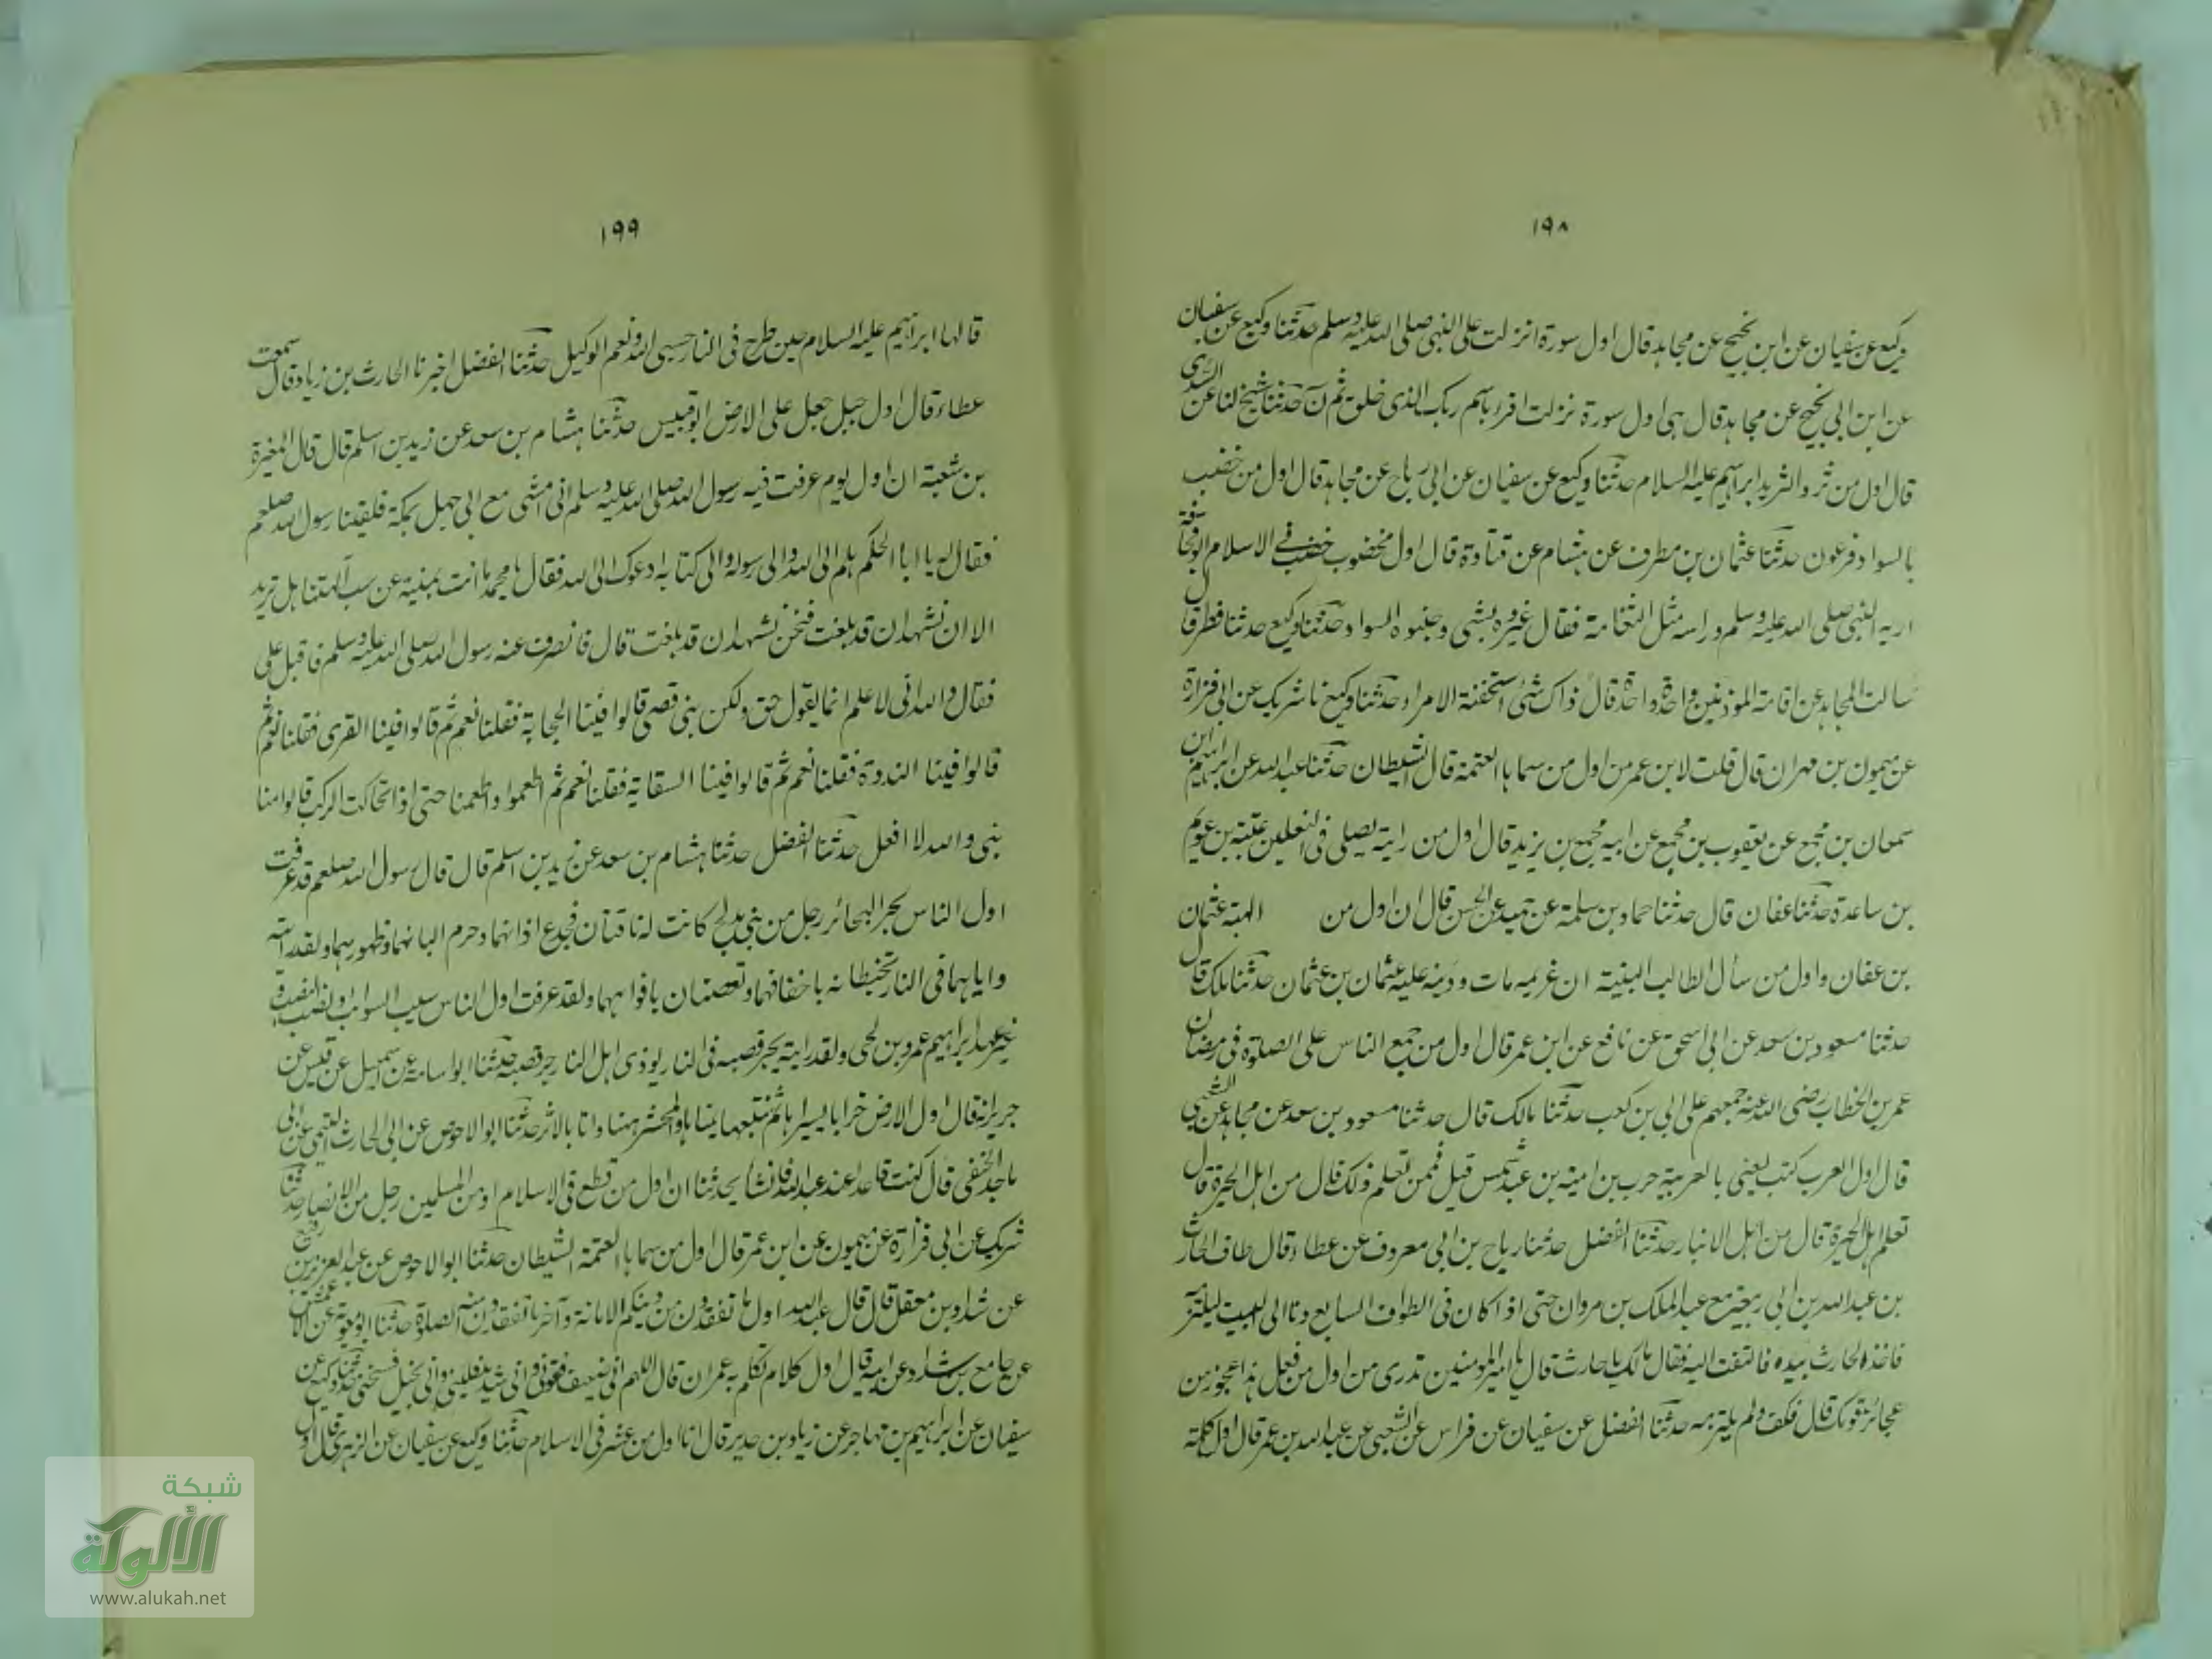 ١٩٨
وكيع عن سفيان عن ابن نجيح عن مجاهد قال اول سورة انزلت على النبي صلى الله عليه وسلم حدثنا وكيع عن سفيان
عن ابن ابي نجيح عن مجاهد قال هي اول سورة نزلت اقرء باسم ربك الذي خلق ثم ن حدثنا شيخ لنا عن السدي
قال اول من ثرد الثريد ابراهيم عليه السلام حدثنا وكيع عن سفيان عن ابي رباح عن مجاهد قال اول من خضب
بالسواد فرعون حدثنا عثمان بن مطرف عن هشام عن قتادة قال اول مخضوب خضب في الاسلام ابو قحافة
اريه النبي صلى الله عليه وسلم وراسه مثل الثغامة فقال غيروه بشي وجنبوه السواد حدثنا وكيع حدثنا فطر قال
سالت المجاهد عن اقامة الموذنين واحدة واحدة قال ذاك شئ استخفته الامراء حدثنا وكيع نا شريك عن ابي فزارة
عن ميمون بن مهران قال قلت لابن عمر من اول من سماها العتمة قال الشيطان حدثنا عبد الله عن ابراهيم بن
سمعان بن مجمع عن يعقوب بن مجمع عن ابيه مجمع بن يزيد قال اول من رايته يصلي في النعلين عتبة بن عويم
بن ساعدة حدثنا عفان قال حدثنا حماد بن سلمة عن حميد عن الحسن قال ان اول من الهبة عثمان
بن عفان واول من سأل الطالب البينة ان غريمه مات ودينه عليه عثمان بن عثمان حدثنا ملك قال
حدثنا مسعود بن سعد عن ابي اسحق عن نافع عن ابن عمر قال اول من جمع الناس على الصلوة في رمضان
عمر بن الخطاب رضي الله عنه جمعهم على ابي بن كعب حدثنا مالك قال حدثنا مسعود بن سعد عن مجاهد عن الشعبي
قال اول العرب كتب يعني بالعربية حرب بن امية بن عبد شمس قيل فممن تعلم ذلك قال من اهل الحيرة قال
تعلم اهل الحيرة قال من اهل الانبار حدثنا الفضل حدثنا رباح بن ابي معروف عن عطاء قال طاف الحارث
بن عبد الله بن ابي ربيعة مع عبد الملك بن مروان حتى اذا كان في الطواف السابع دنا الى البيت ليلتزمه
فاخذه الحارث بيده فالتفت اليه فقال مالك يا حارث قال يا امير المومنين تدري من اول من فعل هذا عجوز من
عجائز قومك قال فكف ولم يلتزمه حدثنا الفضل عن سفيان عن فراس عن الشعبي عن عبد الله بن عمر قال اول كلمة
١٩٩
قالها ابراهيم عليه السلام حين طرح في النار حسبي الله ونعم الوكيل حدثنا الفضل اخبرنا الحارث بن زياد قال سمعت
عطاء قال اول جبل جعل على الارض ابو قبيس حدثنا هشام بن سعد عن زيد بن اسلم قال قال المغيرة
بن شعبة ان اول يوم عرفت فيه رسول الله صلى الله عليه وسلم اني امشي مع ابي جهل بمكة فلقينا رسول الله صلعم
فقال له يا ابا الحكم هلم الى الله والى رسوله والى كتابه ادعوك الى الله فقال يا محمد ما انت بمنته عن سب آلهتنا هل تريد
الا ان نشهد ان قد بلغت فنحن نشهد ان قد بلغت قال فانصرف عنه رسول الله صلى الله عليه وسلم فاقبل على
فقال والله اني لاعلم انما يقول حق ولكن بني قصي قالوا فينا الحجابة فقلنا نعم ثم قالوا فينا القرى فقلنا نعم ثم
قالوا فينا الندوة فقلنا نعم ثم قالوا فينا السقاية فقلنا نعم ثم اطعموا واطعمنا حتى اذا تحاكت الركب قالوا منا
نبي والله لا افعل حدثنا الفضل حدثنا هشام بن سعد عن زيد بن اسلم قال قال رسول الله صلعم قد عرفت
اول الناس بحر البحائر رجل من بني مدلج كانت له ناقتان فجدع اذانهما وحرم البانهما وظهورهما ولقد رايته
واياهما في النار تخبطانه باخفافهما وتعضانه بافواههما ولقد عرفت اول الناس سيب السوائب ونصب النصب و
غير عهد ابراهيم عمرو بن لحي ولقد رايته يجر قصبه في النار يوذي اهل النار جر قصبه حدثنا ابو اسامة عن اسمعيل عن قيس عن
جرير انه قال اول الارض خرابا يسراها ثم تتبعها يمناها والمحشر ههنا وانا بالاثر حدثنا ابو الاحوص عن ابي الحارث التيمي عن ابي
ماجد الحنفي قال كنت قاعدا عند عبد الله فانشأ يحدثنا ان اول من قطع في الاسلام او من المسلمين رجل من الانصار حدثنا
شريك عن ابي فزارة عن ميمون عن ابن عمر قال اول من سماها العتمة الشيطان حدثنا ابو الاحوص عن عبد العزيز بن رفيع
عن شداد بن معقل قال قال عبد الله اول ما تفقدون من دينكم الامانة وآخر ما تفقدون منه الصلاة حدثنا ابو معوية عن الاعمش
عن جامع بن شداد عن ابيه قال اول كلام تكلم به عمر ان قال اللهم اني ضعيف فقوني واني شديد فليني واني بخيل فسخني حدثنا وكيع عن
سفيان عن ابراهيم بن مهاجر عن زياد بن حدير قال انا اول من عشر في الاسلام حدثنا وكيع عن سفيان عن الزهري قال اول
شبكة
الألوكة
www.alukah.net